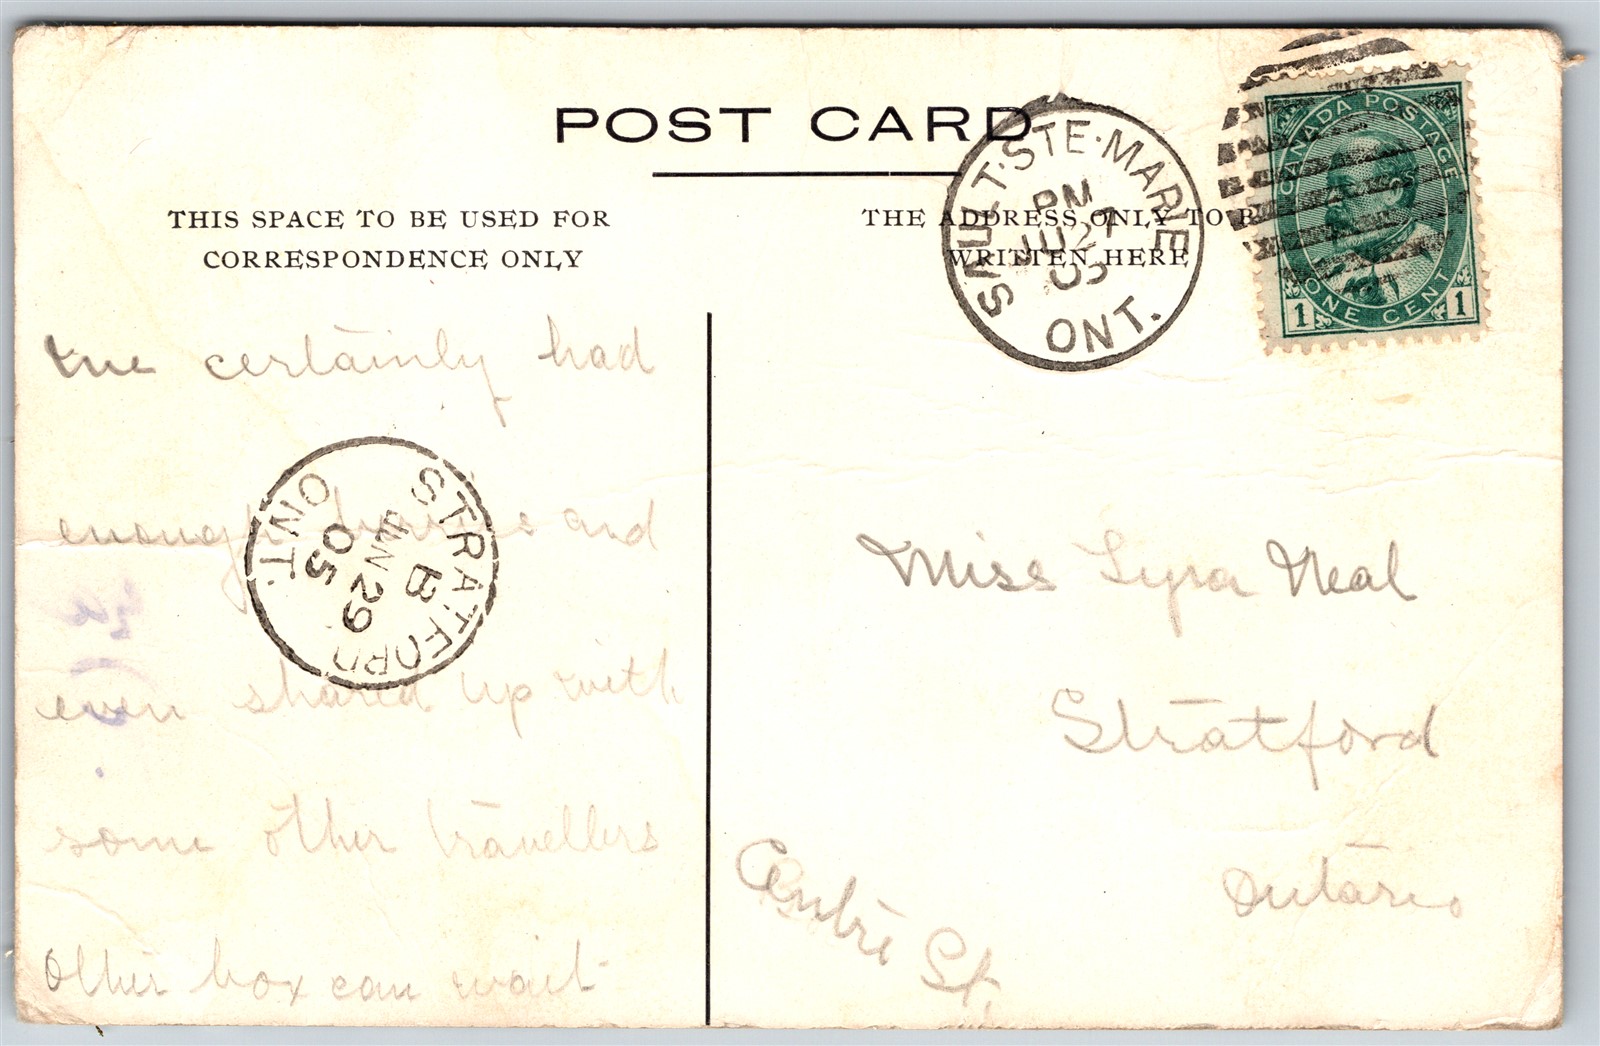 POST CARD
THIS SPACE TO BE USED FOR
CORRESPONDENCE ONLY
THE ADDRESS ONLY TO B
WRITTEN HERE
SAULT·STE·MARIE
PM
JU 27
05
ONT.
CANADA POSTAGE
1 ONE CENT 1
certainly had
enough and
even shared up with
some other travellers
Other box can wait
STRATFORD
B
JUN 29
05
ONT.
Miss Lyra Neal
Stratford
Ontario
Centre St.